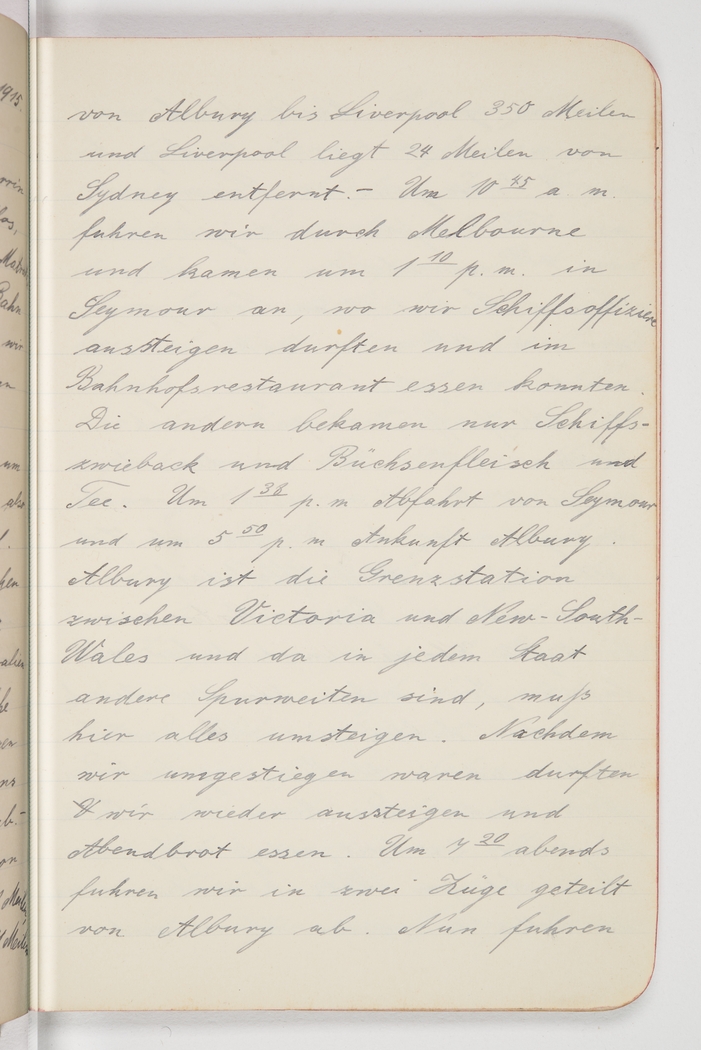 1915.
von Albury bis Liverpool 350 Meilen
und Liverpool liegt 24 Meilen von
Sydney entfernt. – Um 10 45 a m.
fuhren wir durch Melbourne
und kamen um 1 10 p. m. in
Seymour an, wo wir Schiffsoffiziere
aussteigen durften und im
Bahnhofsrestaurant essen konnten.
Die andern bekamen nur Schiffs-
zwieback und Büchsenfleisch und
Tee. Um 1 38 p. m Abfahrt von Seymour
und um 5 50 p. m Ankunft Albury.
Albury ist die Grenzstation
zwischen Victoria und New-South-
Wales und da in jedem Staat
andere Spurweiten sind, muß
hier alles umsteigen. Nachdem
wir umgestiegen waren durften
wir wieder aussteigen und
Abendbrot essen. Um 7 20 abends
fuhren wir in zwei Züge geteilt
von Albury ab. Nun fuhren